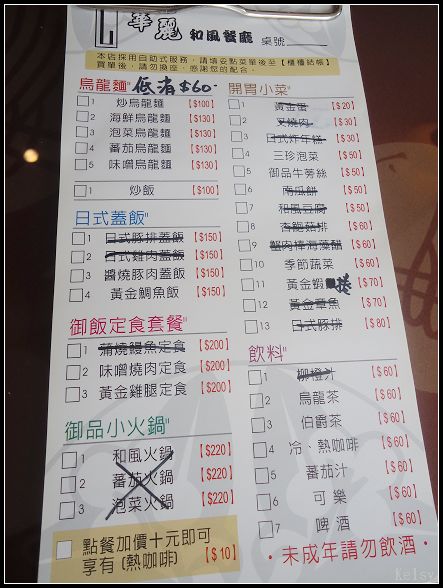 華麗 和風餐廳 桌號
本店採用自助式服務，請填妥點菜單後至【櫃檯結帳】
買單後，請勿換座，感謝您的配合。
烏龍麵 低消$60.
1 炒烏龍麵 【$100】
2 海鮮烏龍麵 【$130】
3 泡菜烏龍麵 【$130】
4 蕃茄烏龍麵 【$130】
5 味噌烏龍麵 【$130】
1 炒飯 【$100】
日式蓋飯
1 日式豚排蓋飯 【$150】
2 日式雞肉蓋飯 【$150】
3 醬燒豚肉蓋飯 【$150】
4 黃金鯛魚飯 【$150】
御飯定食套餐
1 蒲燒鰻魚定食 【$200】
2 味噌燒肉定食 【$200】
3 黃金雞腿定食 【$200】
御品小火鍋
1 和風火鍋 【$220】
2 蕃茄火鍋 【$220】
3 泡菜火鍋 【$220】
點餐加價十元即可
享有(熱咖啡) 【$10】
開胃小菜
1 黃金蛋 【$20】
2 叉燒肉 【$30】
3 日式炸年糕 【$30】
4 三珍泡菜 【$50】
5 御品牛蒡絲 【$50】
6 南瓜餅 【$50】
7 和風豆腐 【$50】
8 杏鮑菇排 【$60】
9 蟹肉棒海藻酥 【$60】
10 季節蔬菜 【$60】
11 黃金蝦捲 【$70】
12 黃金章魚 【$70】
13 日式豚排 【$80】
飲料
1 柳橙汁 【$60】
2 烏龍茶 【$60】
3 伯爵茶 【$60】
4 冷、熱咖啡 【$60】
5 蕃茄汁 【$60】
6 可樂 【$60】
7 啤酒 【$60】
•未成年請勿飲酒•
Kelsy